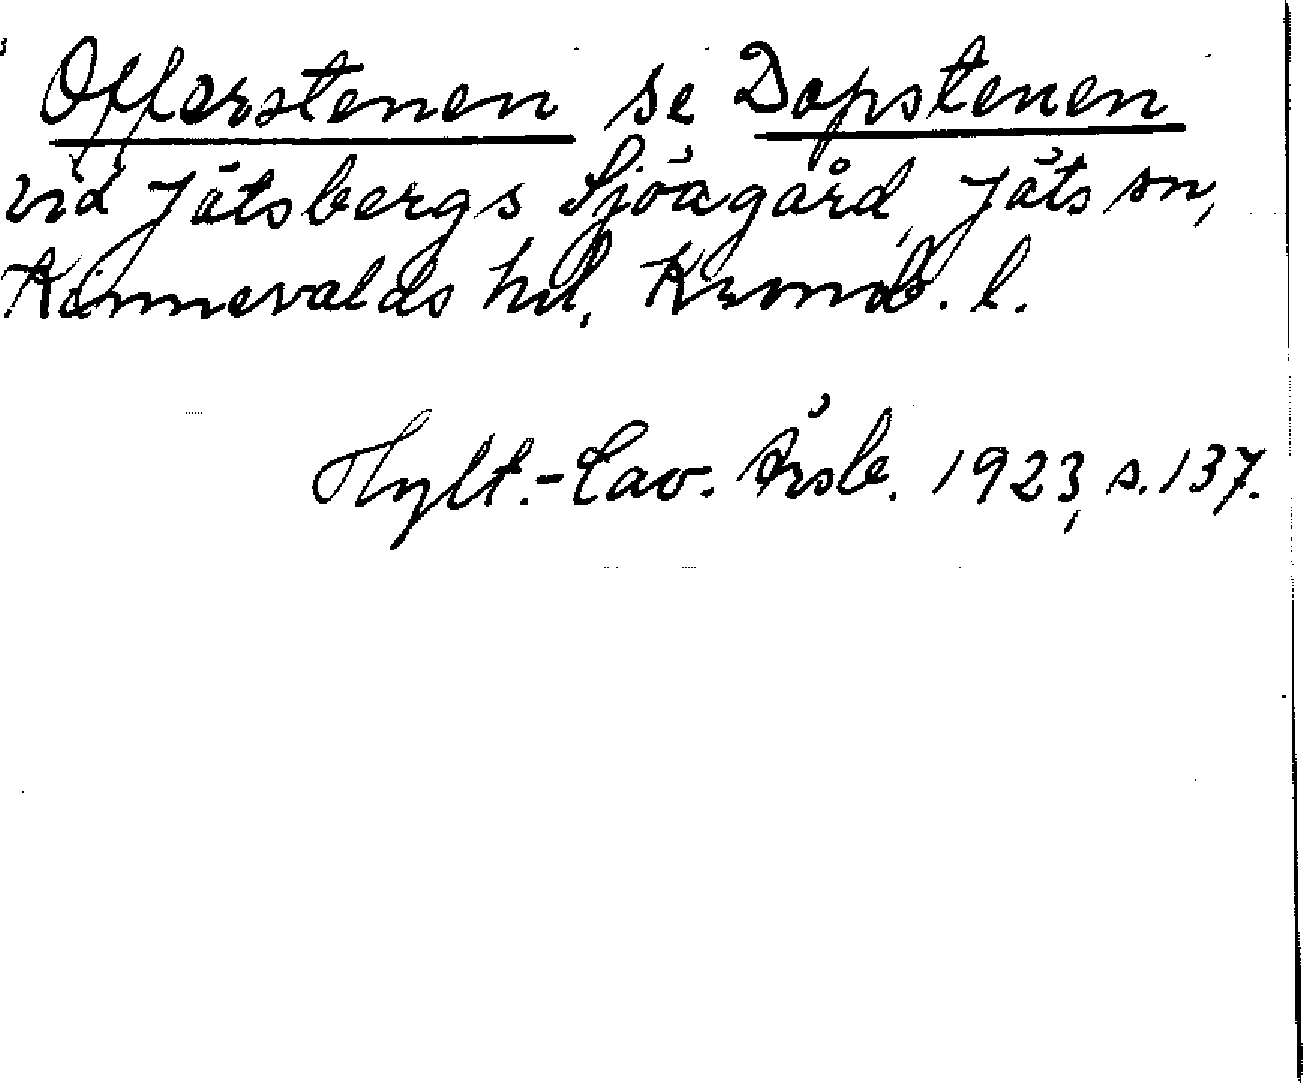 Offerstenen se Dopstenen
vid Jätsbergs Sjöagård, Jäts sn,
Kinnevalds hd, Kronob. l.
Hylt.-Cav. Årsb. 1923, s. 137.